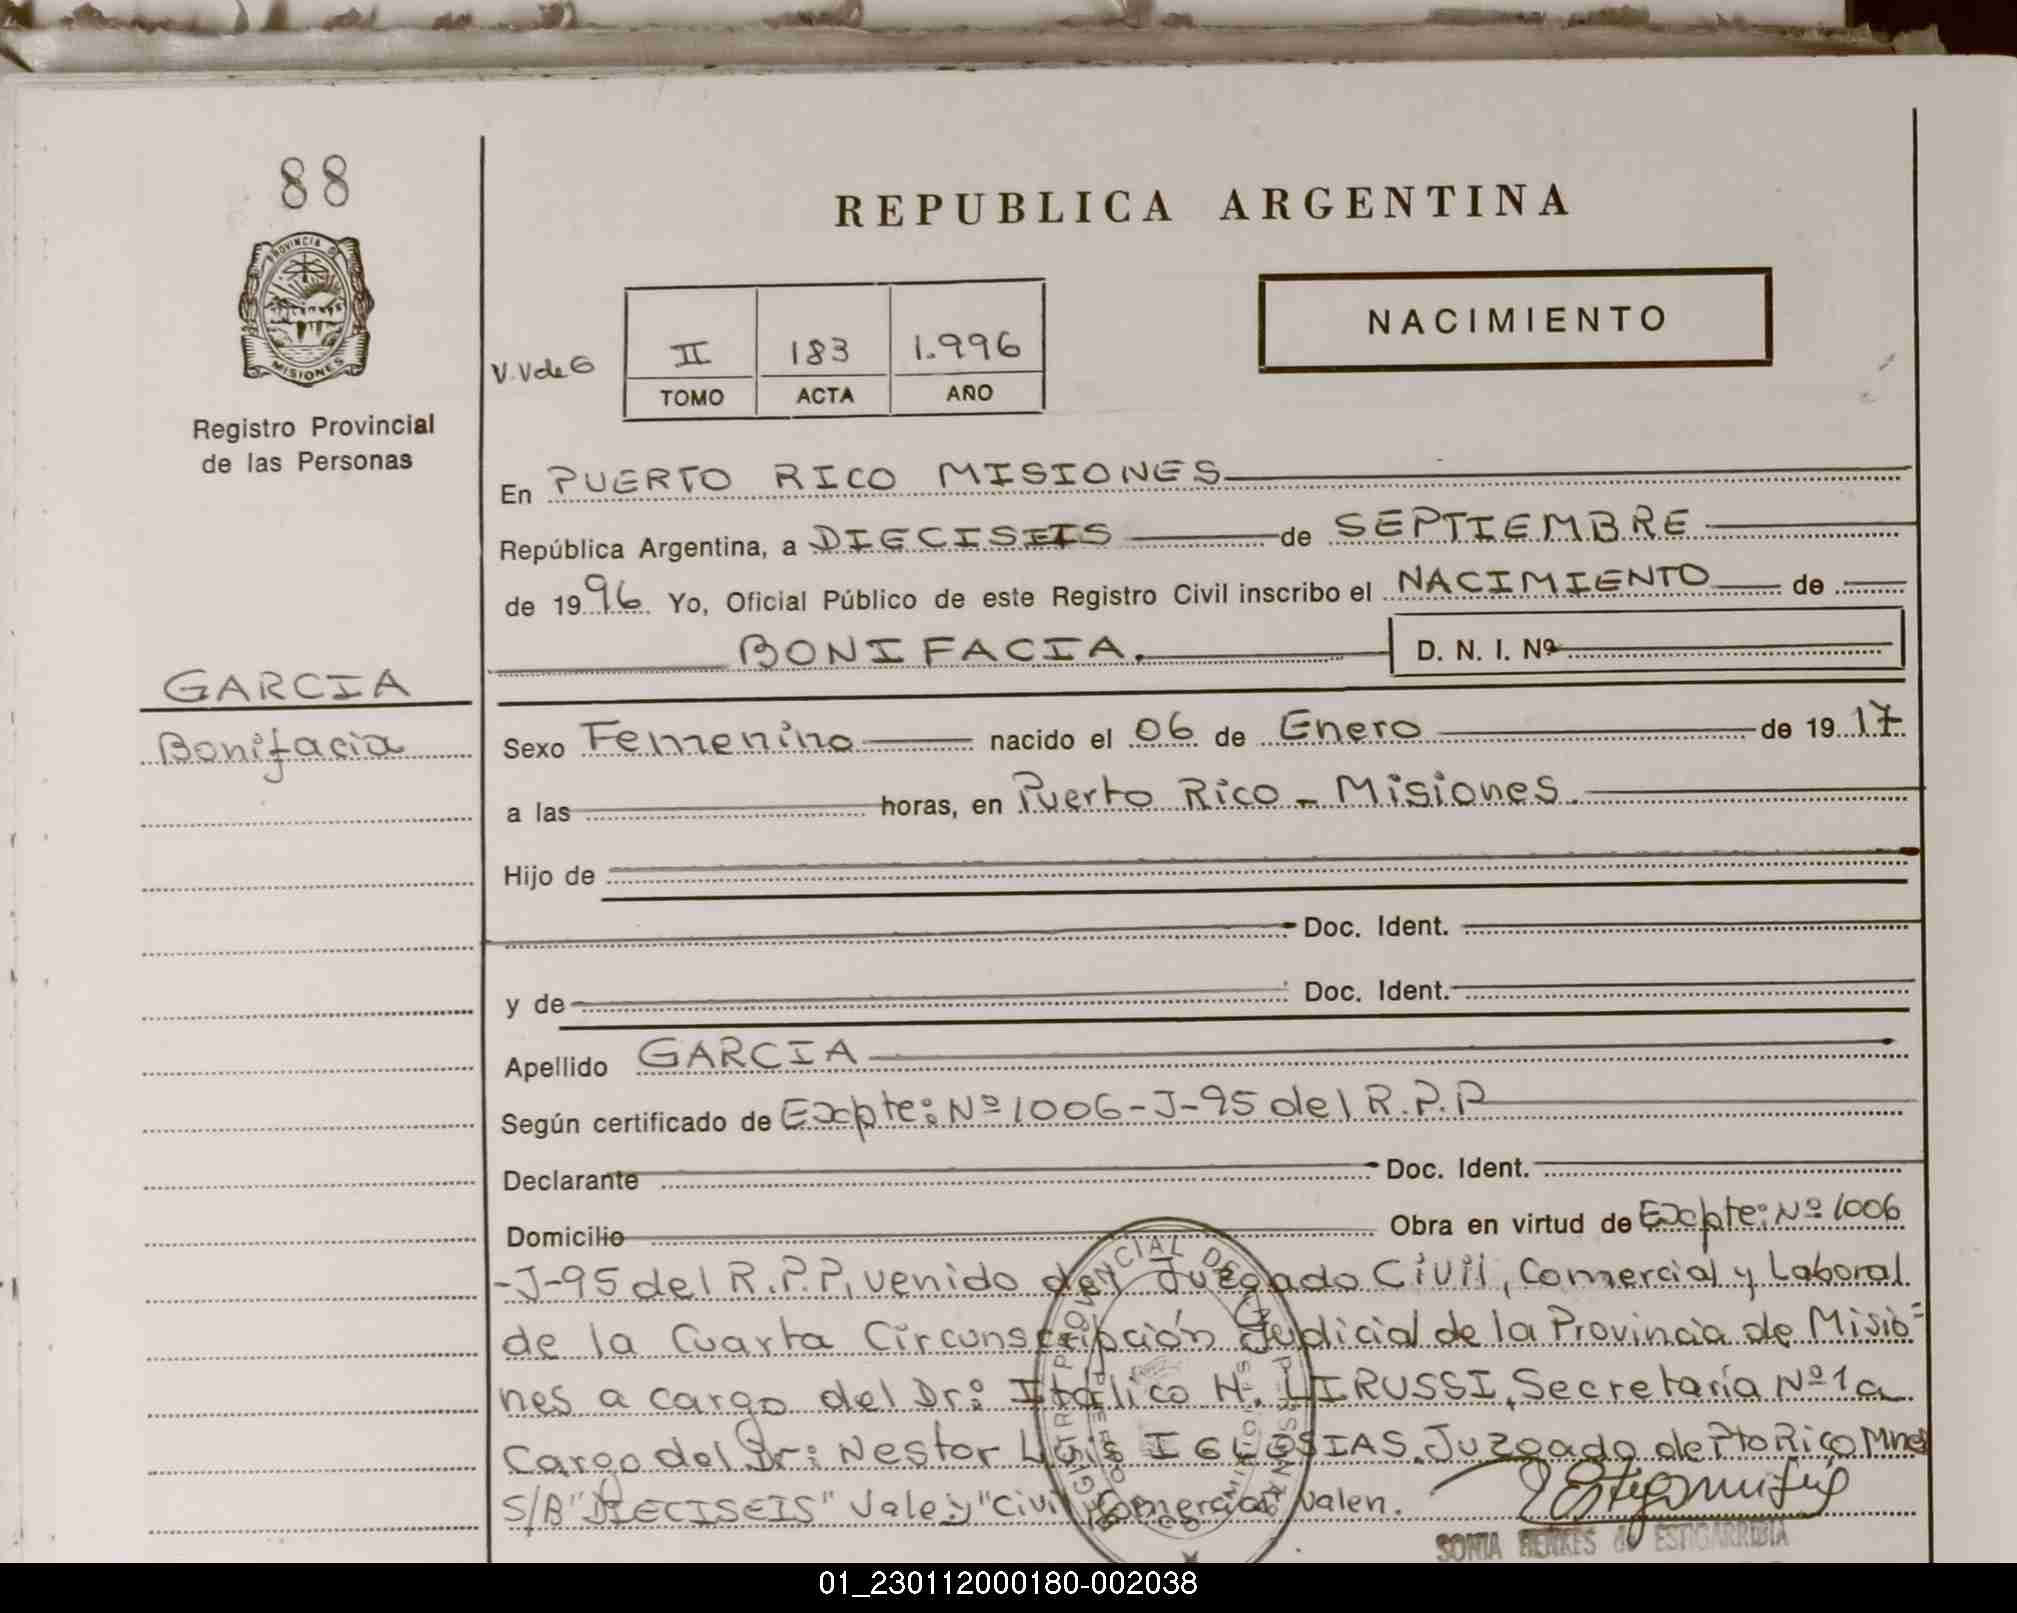 88
REPUBLICA ARGENTINA
PROVINCIA DE
MISIONES
NACIMIENTO
V.V de G
II 183 1.996
TOMO ACTA AÑO
Registro Provincial
de las Personas
En PUERTO RICO MISIONES
República Argentina, a DIECISEIS de SEPTIEMBRE
de 1996 Yo, Oficial Público de este Registro Civil inscribo el NACIMIENTO de
BONIFACIA. D. N. I. Nº
GARCIA
Bonifacia
Sexo Femenino nacido el 06 de Enero de 1917
a las horas, en Puerto Rico - Misiones.
Hijo de
Doc. Ident.
y de Doc. Ident.
Apellido GARCIA
Según certificado de Expte: Nº 1006-J-95 del R.P.P
Declarante Doc. Ident.
Domicilio Obra en virtud de Expte: Nº 1006
-J-95 del R.P.P, venido del Juzgado Civil, Comercial y Laboral
de la Cuarta Circunscripción Judicial de la Provincia de Misio=
nes a cargo del Dr: Itálico H. LIRUSSI, Secretaría Nº 1 a
Cargo del Dr: Nestor Luis IGLESIAS. Juzgado de Pto Rico Mnes
S/B "DIECISEIS" Vale: y "Civil Comercial" valen.
SONIA HENKES de ESTIGARRIBIA
01_230112000180-002038